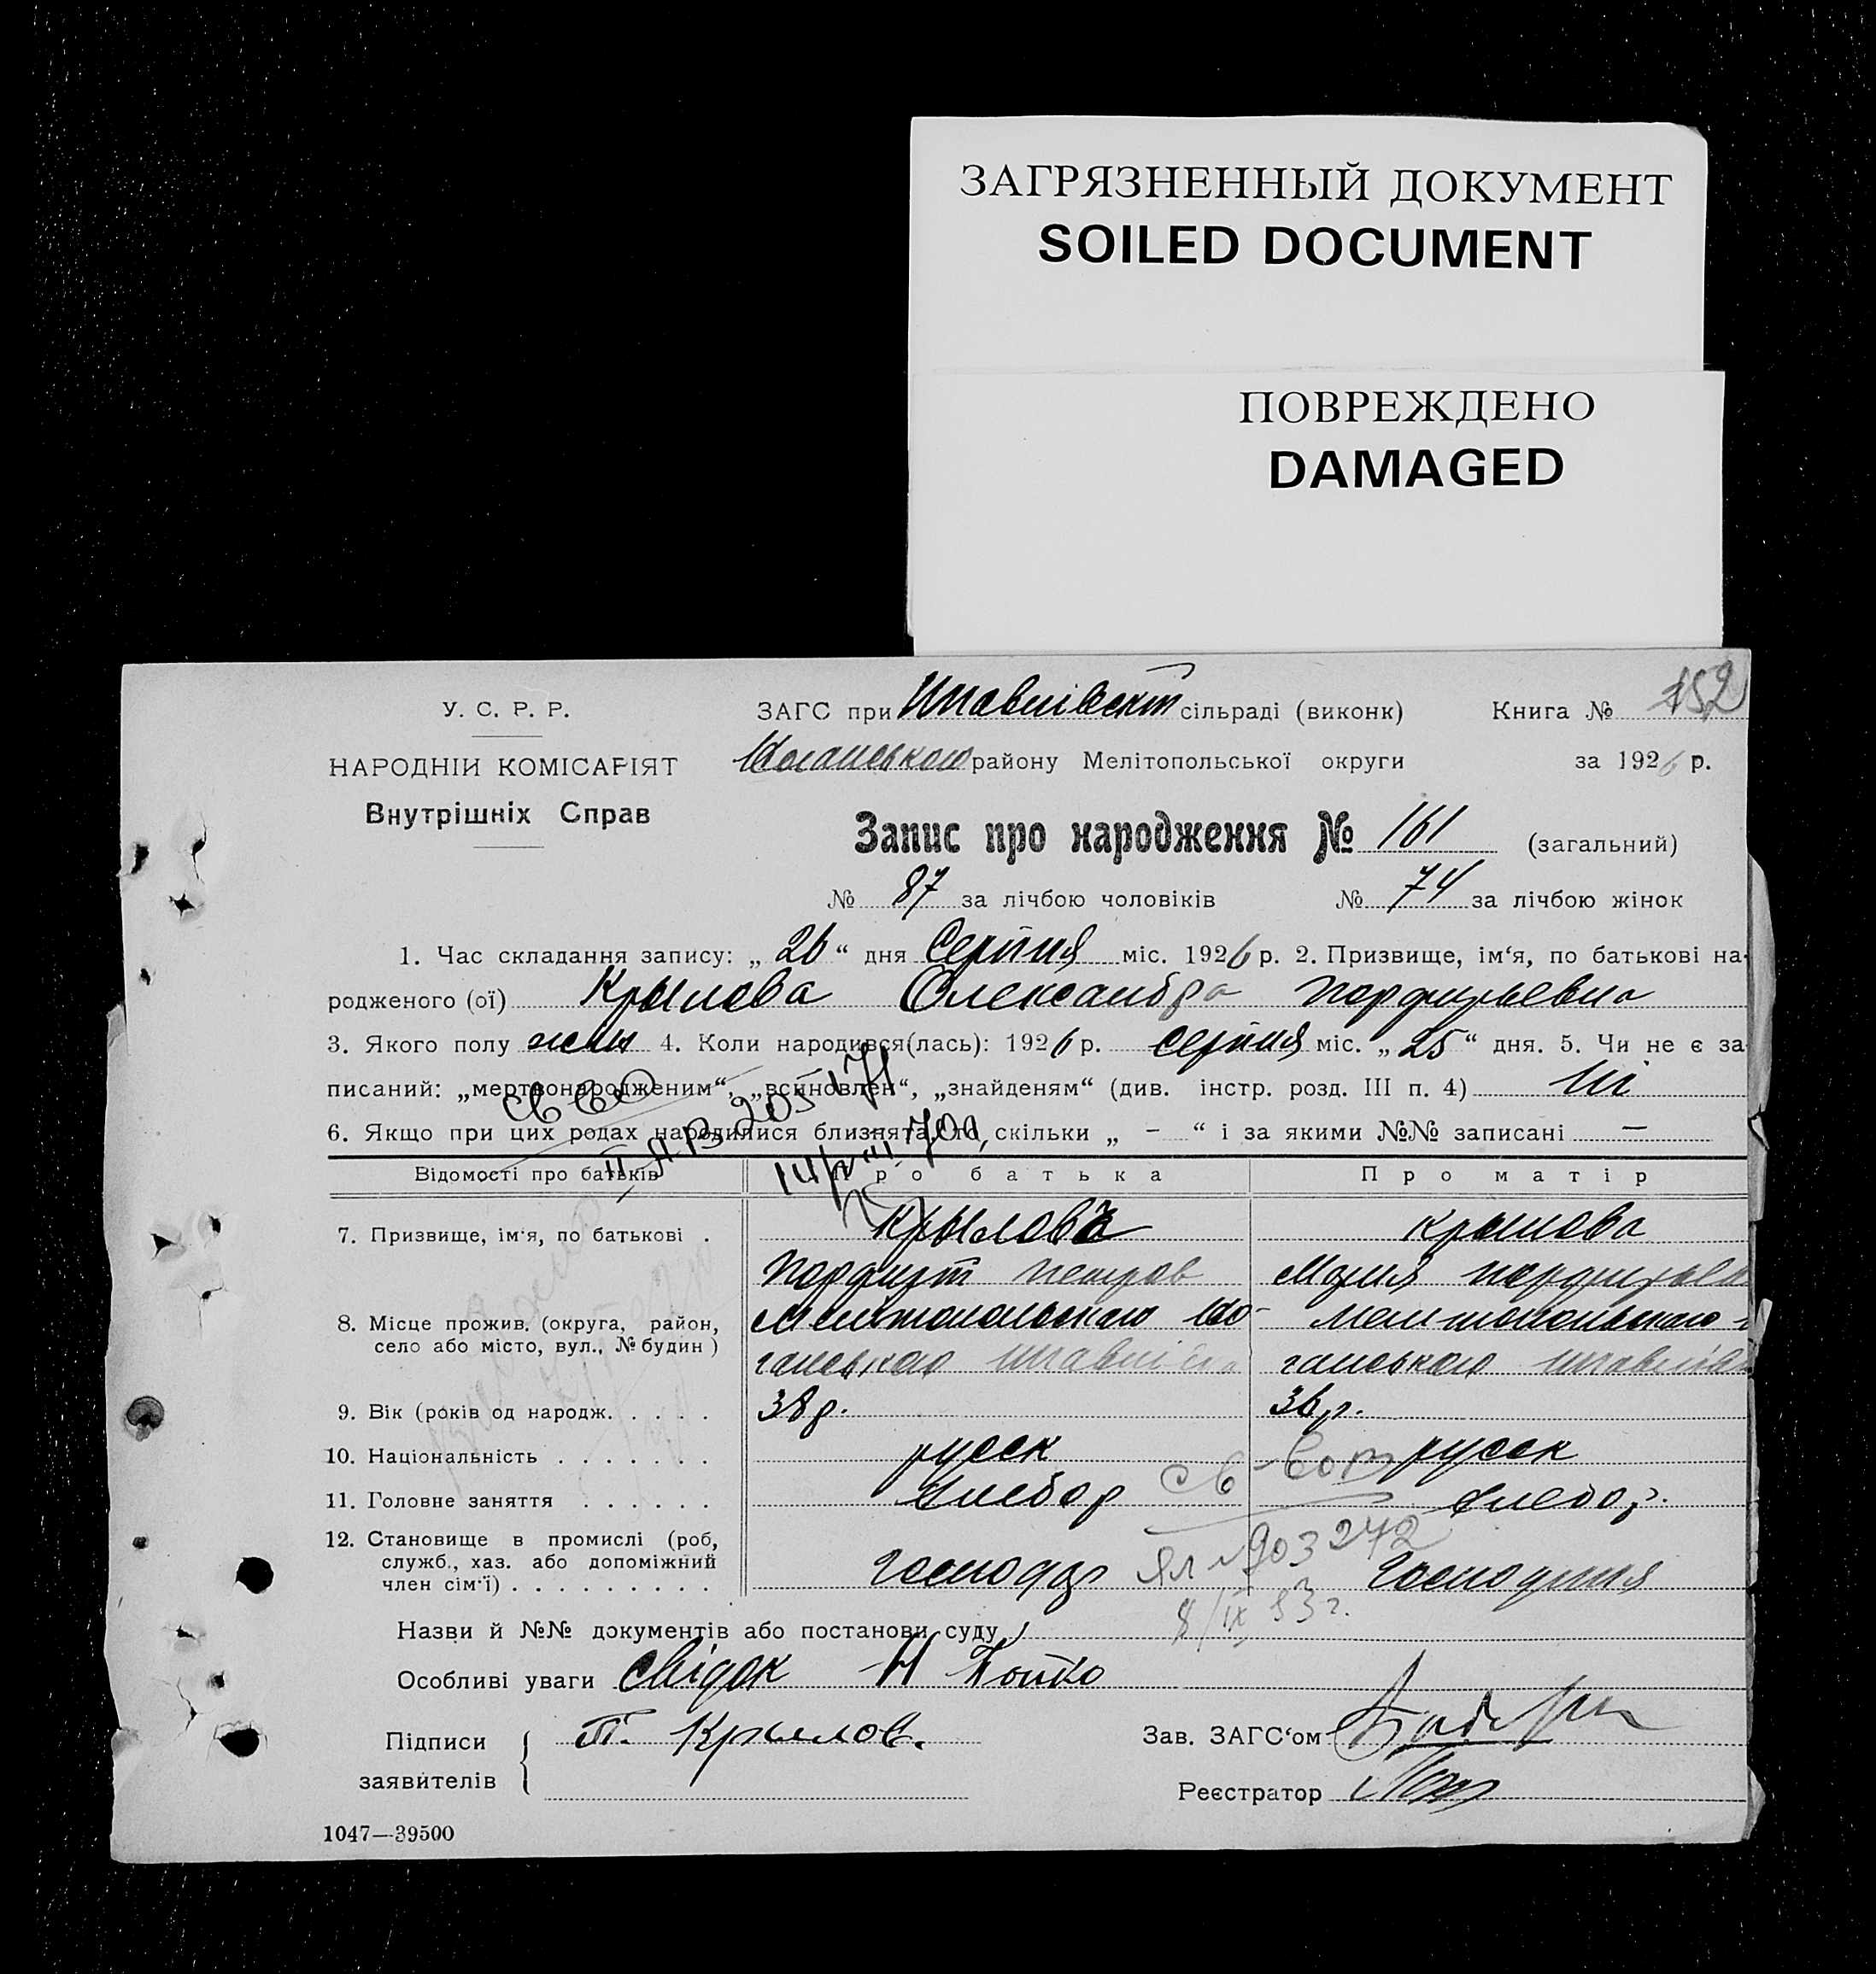 ЗАГРЯЗНЕННЫЙ ДОКУМЕНТ
SOILED DOCUMENT
ПОВРЕЖДЕНО
DAMAGED
У. С. Р. Р.
НАРОДНІЙ КОМІСАРІЯТ
Внутрішніх Справ
ЗАГС при сільраді (виконк) Книга № 152
району Мелітопольської округи за 1926 р.
Запис про народження № 161 (загальний)
№ 87 за лічбою чоловіків № 74 за лічбою жінок
1. Час складання запису: „ 26 “ дня Серпня міс. 1926 р. 2. Призвище, ім‘я, по батькові на-
родженого (ої) Крылова Олександра Порфирьевна
3. Якого полу жін 4. Коли народився(лась): 1926 р. серпня міс. „ 25 “ дня. 5. Чи не є за-
писаний: „мертвонародженим“, „всиновлен“, „знайденям“ (див. інстр. розд. III п. 4) Ні
6. Якщо при цих родах народилися близнята, то скільки „ – “ і за якими №№ записані –
Відомості про батьків Про батька Про матір
7. Призвище, ім‘я, по батькові . Крылов Крылова
Порфирій Петров Марія
8. Місце прожив. (округа, район, Мелітопольского Мелітопольского
село або місто, вул., № будин )
9. Вік (років од народж. . . . . 38 р. 36 р.
10. Національність . . . . . . . русск русск
11. Головне заняття . . . . . . хлебор хлебор.
12. Становище в промислі (роб,
служб., хаз. або допоміжний
член сім‘ї) . . . . . . . . . господар Господиня
ЯЛ № 903242
8/IX 83 г.
Назви й №№ документів або постанови суду
Особливі уваги Свідок Н
Підписи
заявителів
П. Крылов.
Зав. ЗАГС‘ом
Реєстратор
1047—39500